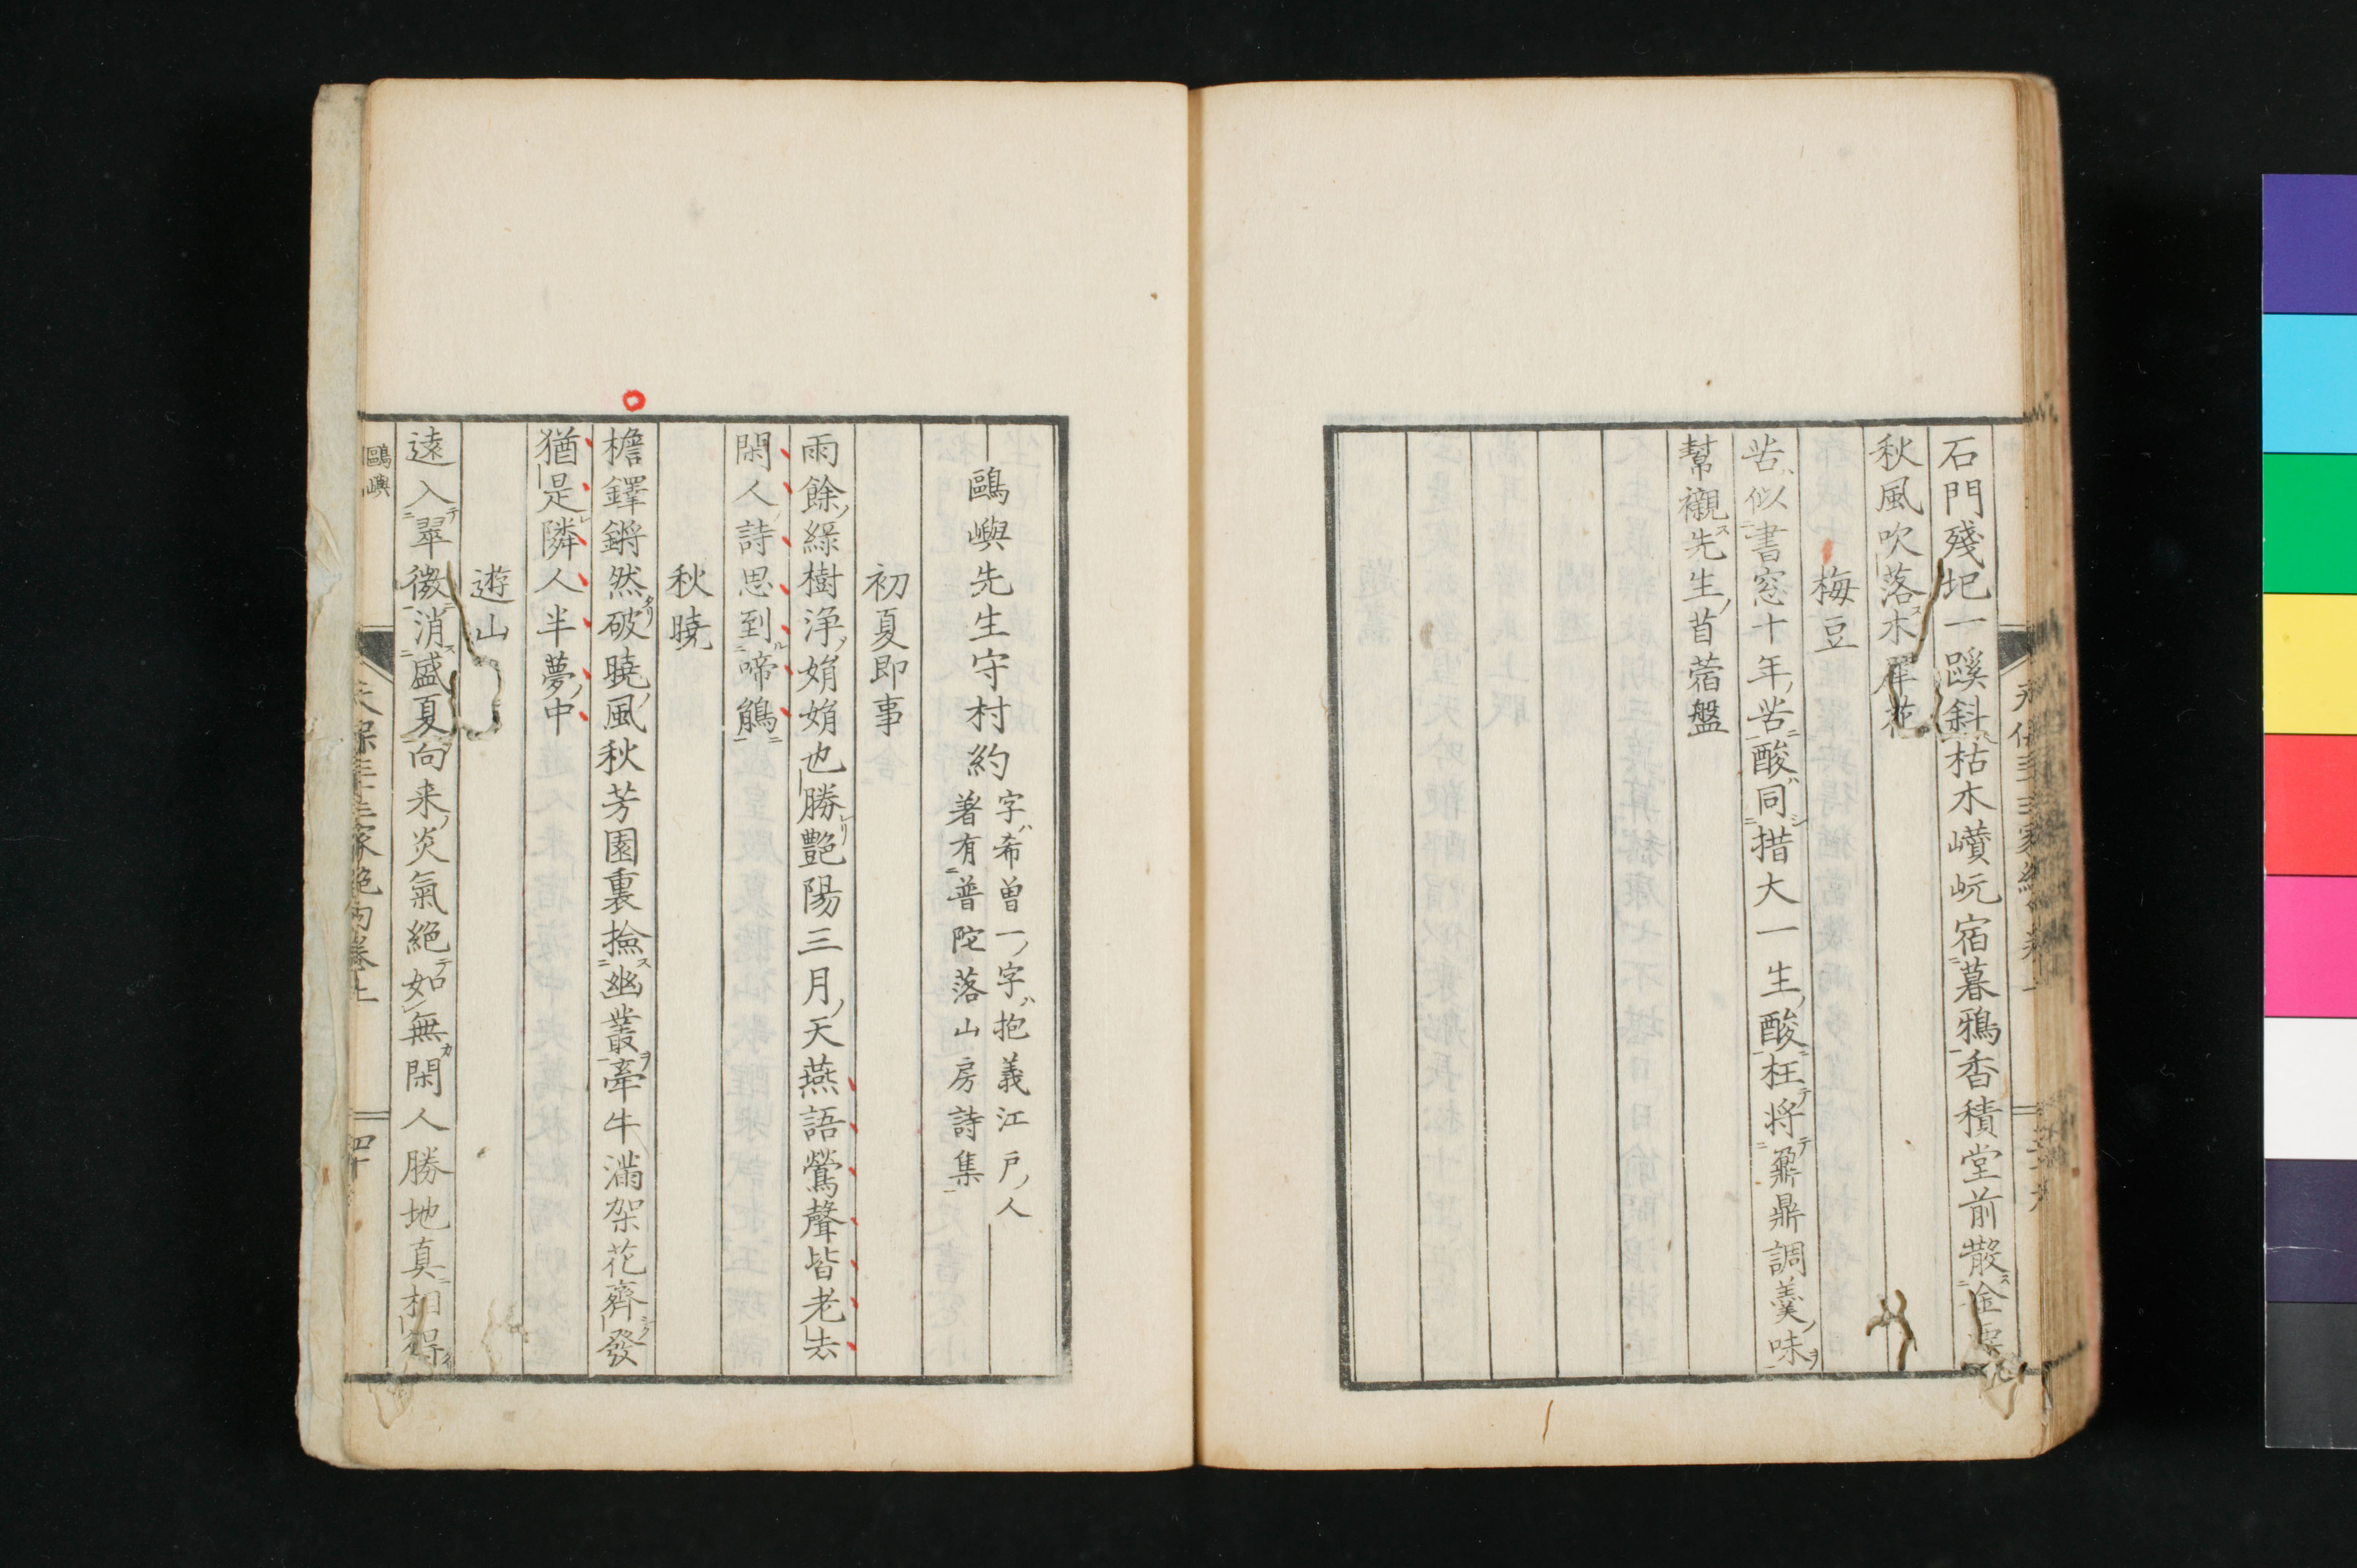 石門殘圯一蹊斜枯木巑岏宿暮鴉香積堂前散金粟
秋風吹落木犀花
梅豆
苦似書窓十年苦酸同措大一生酸枉將鼐鼎調羹味
幫襯先生苜蓿盤
鷗嶼先生守村約
字ハ希曽一ノ字ハ抱義江戸ノ人
著有普陀落山房詩集
初夏即事
雨餘緑樹浄娟娟也勝艶陽三月天燕語鶯聲皆老去
閑人詩思到啼鵑
秋曉
檐鐸鏘然破曉風秋芳園裏撿幽叢牽牛滿架花齊發
猶是隣人半夢中
遊山
遠入翠微消盛夏向来炎氣絶如無閑人勝地真相得
鷗嶼
天保三十三家絶句卷上
四十